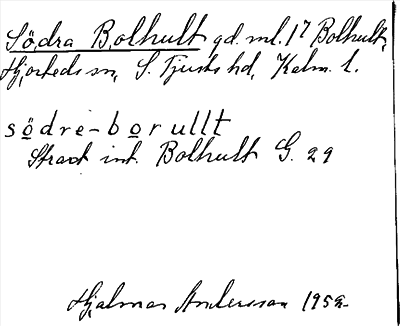 Södra Bolhult gd. ml. 1⁷ Bolhult,
Hjorteds sn, S. Tjusts hd, Kalm. l.
södre-borullt
Stract int. Bolhult G. 29
Hjalmar Andersson 1959.